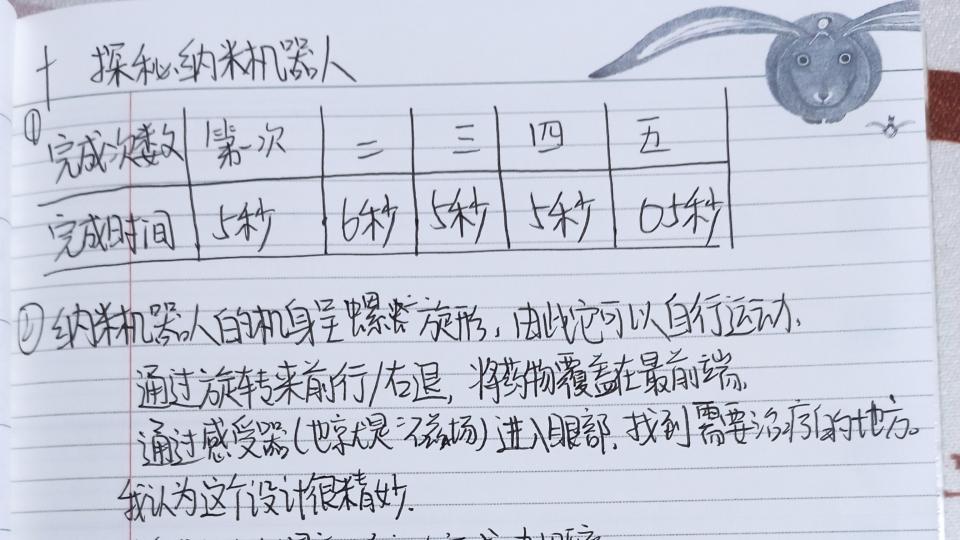 十 探秘纳米机器人
①
完成次数 第一次 二 三 四 五
完成时间 5秒 6秒 5秒 5秒 05秒
② 纳米机器人的机身呈螺旋形,由此它可以自行运动,
通过旋转来前行/后退,将药物覆盖在最前端。
通过感受器(也就是磁场)进入眼部,找到需要治疗的地方。
我认为这个设计很精妙.